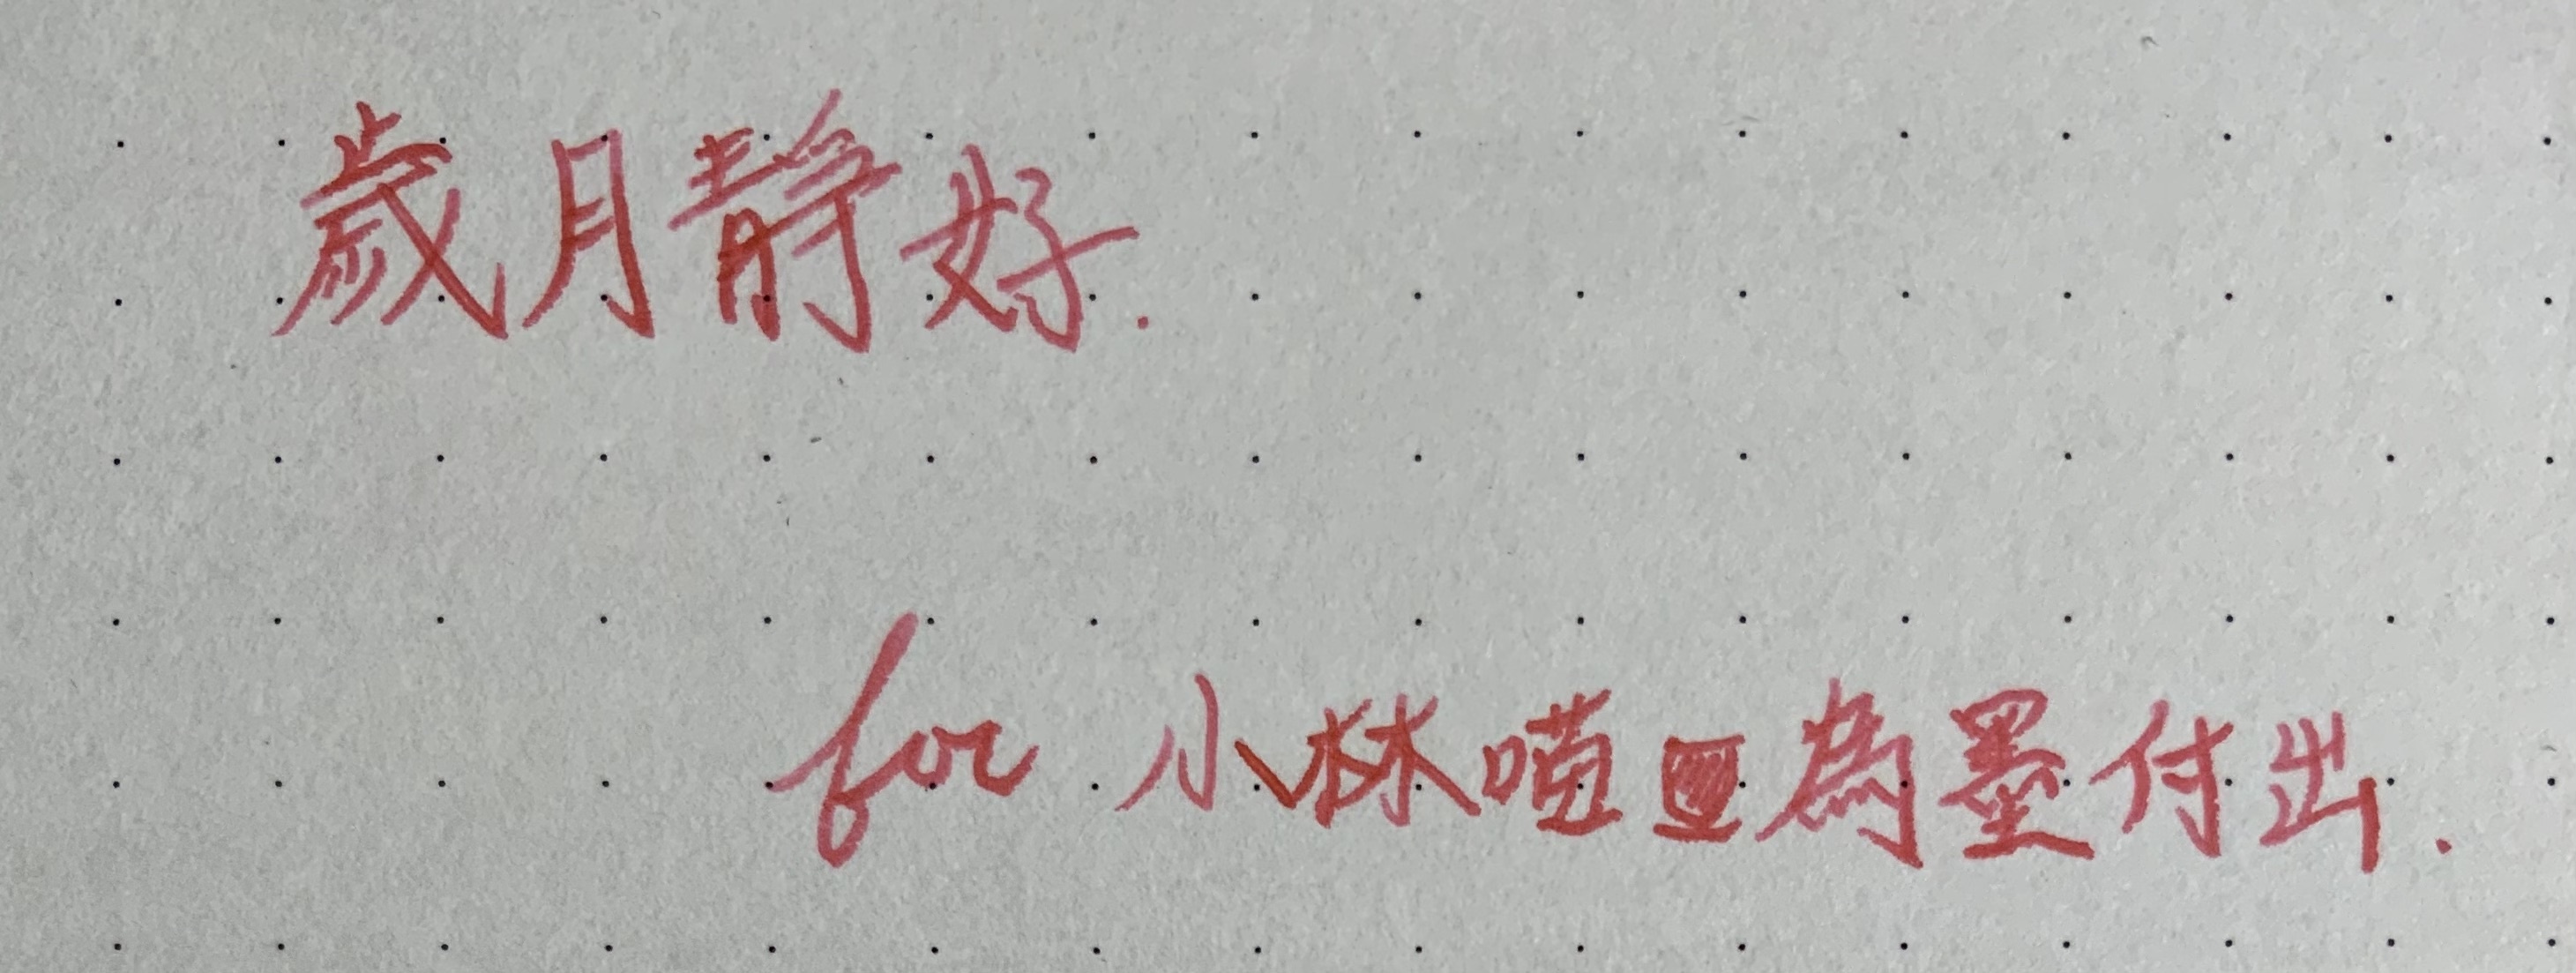 歲月靜好.
for 小林噴 為墨付出.